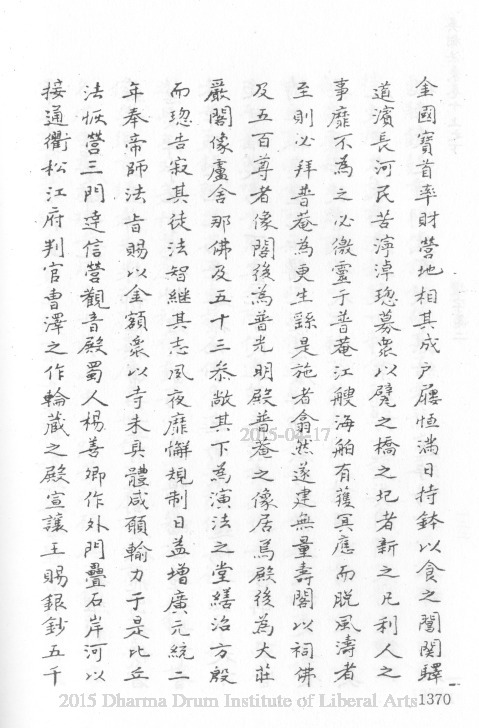 全國寶首率財營地相其成戶屨恆滿日持鉢以食之閽閡驛
道濱長河民苦濘淖璁募衆以甓之橋之圮者新之凡利人之
事靡不為之必徼靈于普菴江艘海舶有獲冥應而脫風濤者
至則必拜普菴為更生繇是施者翕然遂建無量壽閣以祠佛
及五百尊者像閣後為普光明殿普菴之像居焉殿後為大莊
嚴閣像盧舍那佛及五十三叅敞其下為演法之堂繕治方殷
而璁告寂其徒法智繼其志夙夜靡懈規制日益增廣元統二
年奉帝師法旨賜以金額衆以寺未具體咸願輸力于是比丘
法恢營三門達信營觀音殿蜀人楊善卿作外門疊石岸河以
接通衢松江府判官曹澤之作輪藏之殿宣讓王賜銀鈔五千
2015-04-17
2015 Dharma Drum Institute of Liberal Arts
1370